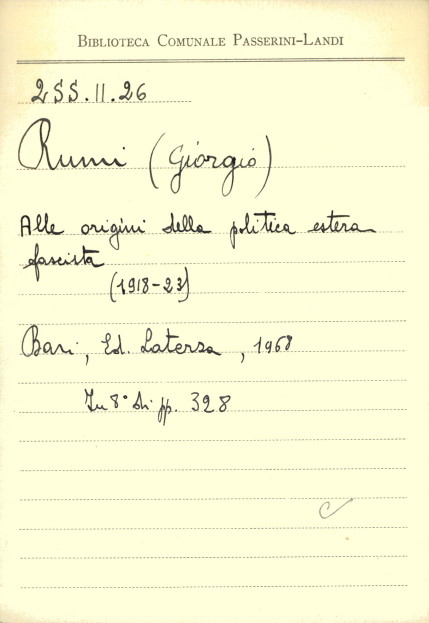 BIBLIOTECA COMUNALE PASSERINI-LANDI
2SS.II.26
Rumi (Giorgio)
Alle origini della politica estera
fascista
(1918-23)
Bari, Ed. Laterza, 1968
In 8° di pp. 328